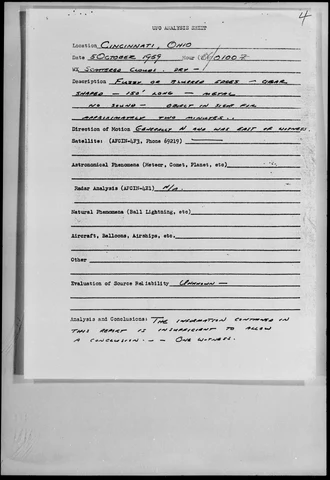 4
UFO ANALYSIS SHEET
Location CINCINNATI, OHIO
Date 5 OCTOBER 1959 Hour 0100Z
WX SCATTERED CLOUDS. DRY -
Description FUZZY OR EDGES - CIGAR
SHAPED - 150' LONG - METAL
NO SOUND - OBJECT IN SIGHT FOR
APPROXIMATELY TWO MINUTES..
Direction of Motion GENERALLY N AND WAS EAST OF WITNESS.
Satellite: (AFCIN-4F3, Phone 69219)
Astronomical Phenomena (Meteor, Comet, Planet, etc)
Radar Analysis (AFCIN-4E1) N/A
Natural Phenomena (Ball Lightning, etc)
Aircraft, Balloons, Airships, etc.
Other
Evaluation of Source Reliability UNKNOWN -
Analysis and Conclusions: THE INFORMATION CONTAINED IN
THIS REPORT IS INSUFFICIENT TO ALLOW
A CONCLUSION. - - ONE WITNESS.